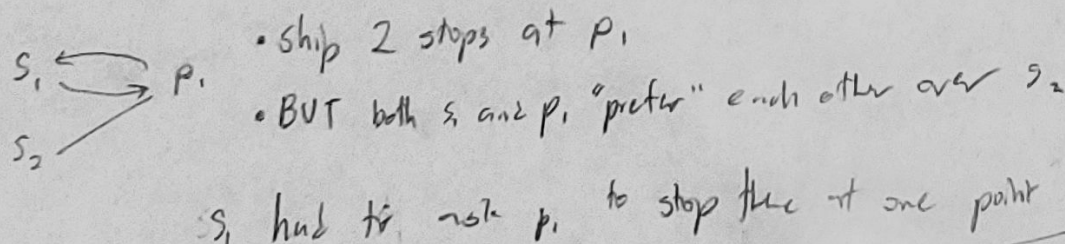 • ship 2 stops at p₁
s₁ p₁
• BUT both s₁ and p₁ "prefer" each other over s₂
s₂
s₁ had to ask p₁ to stop there at one point